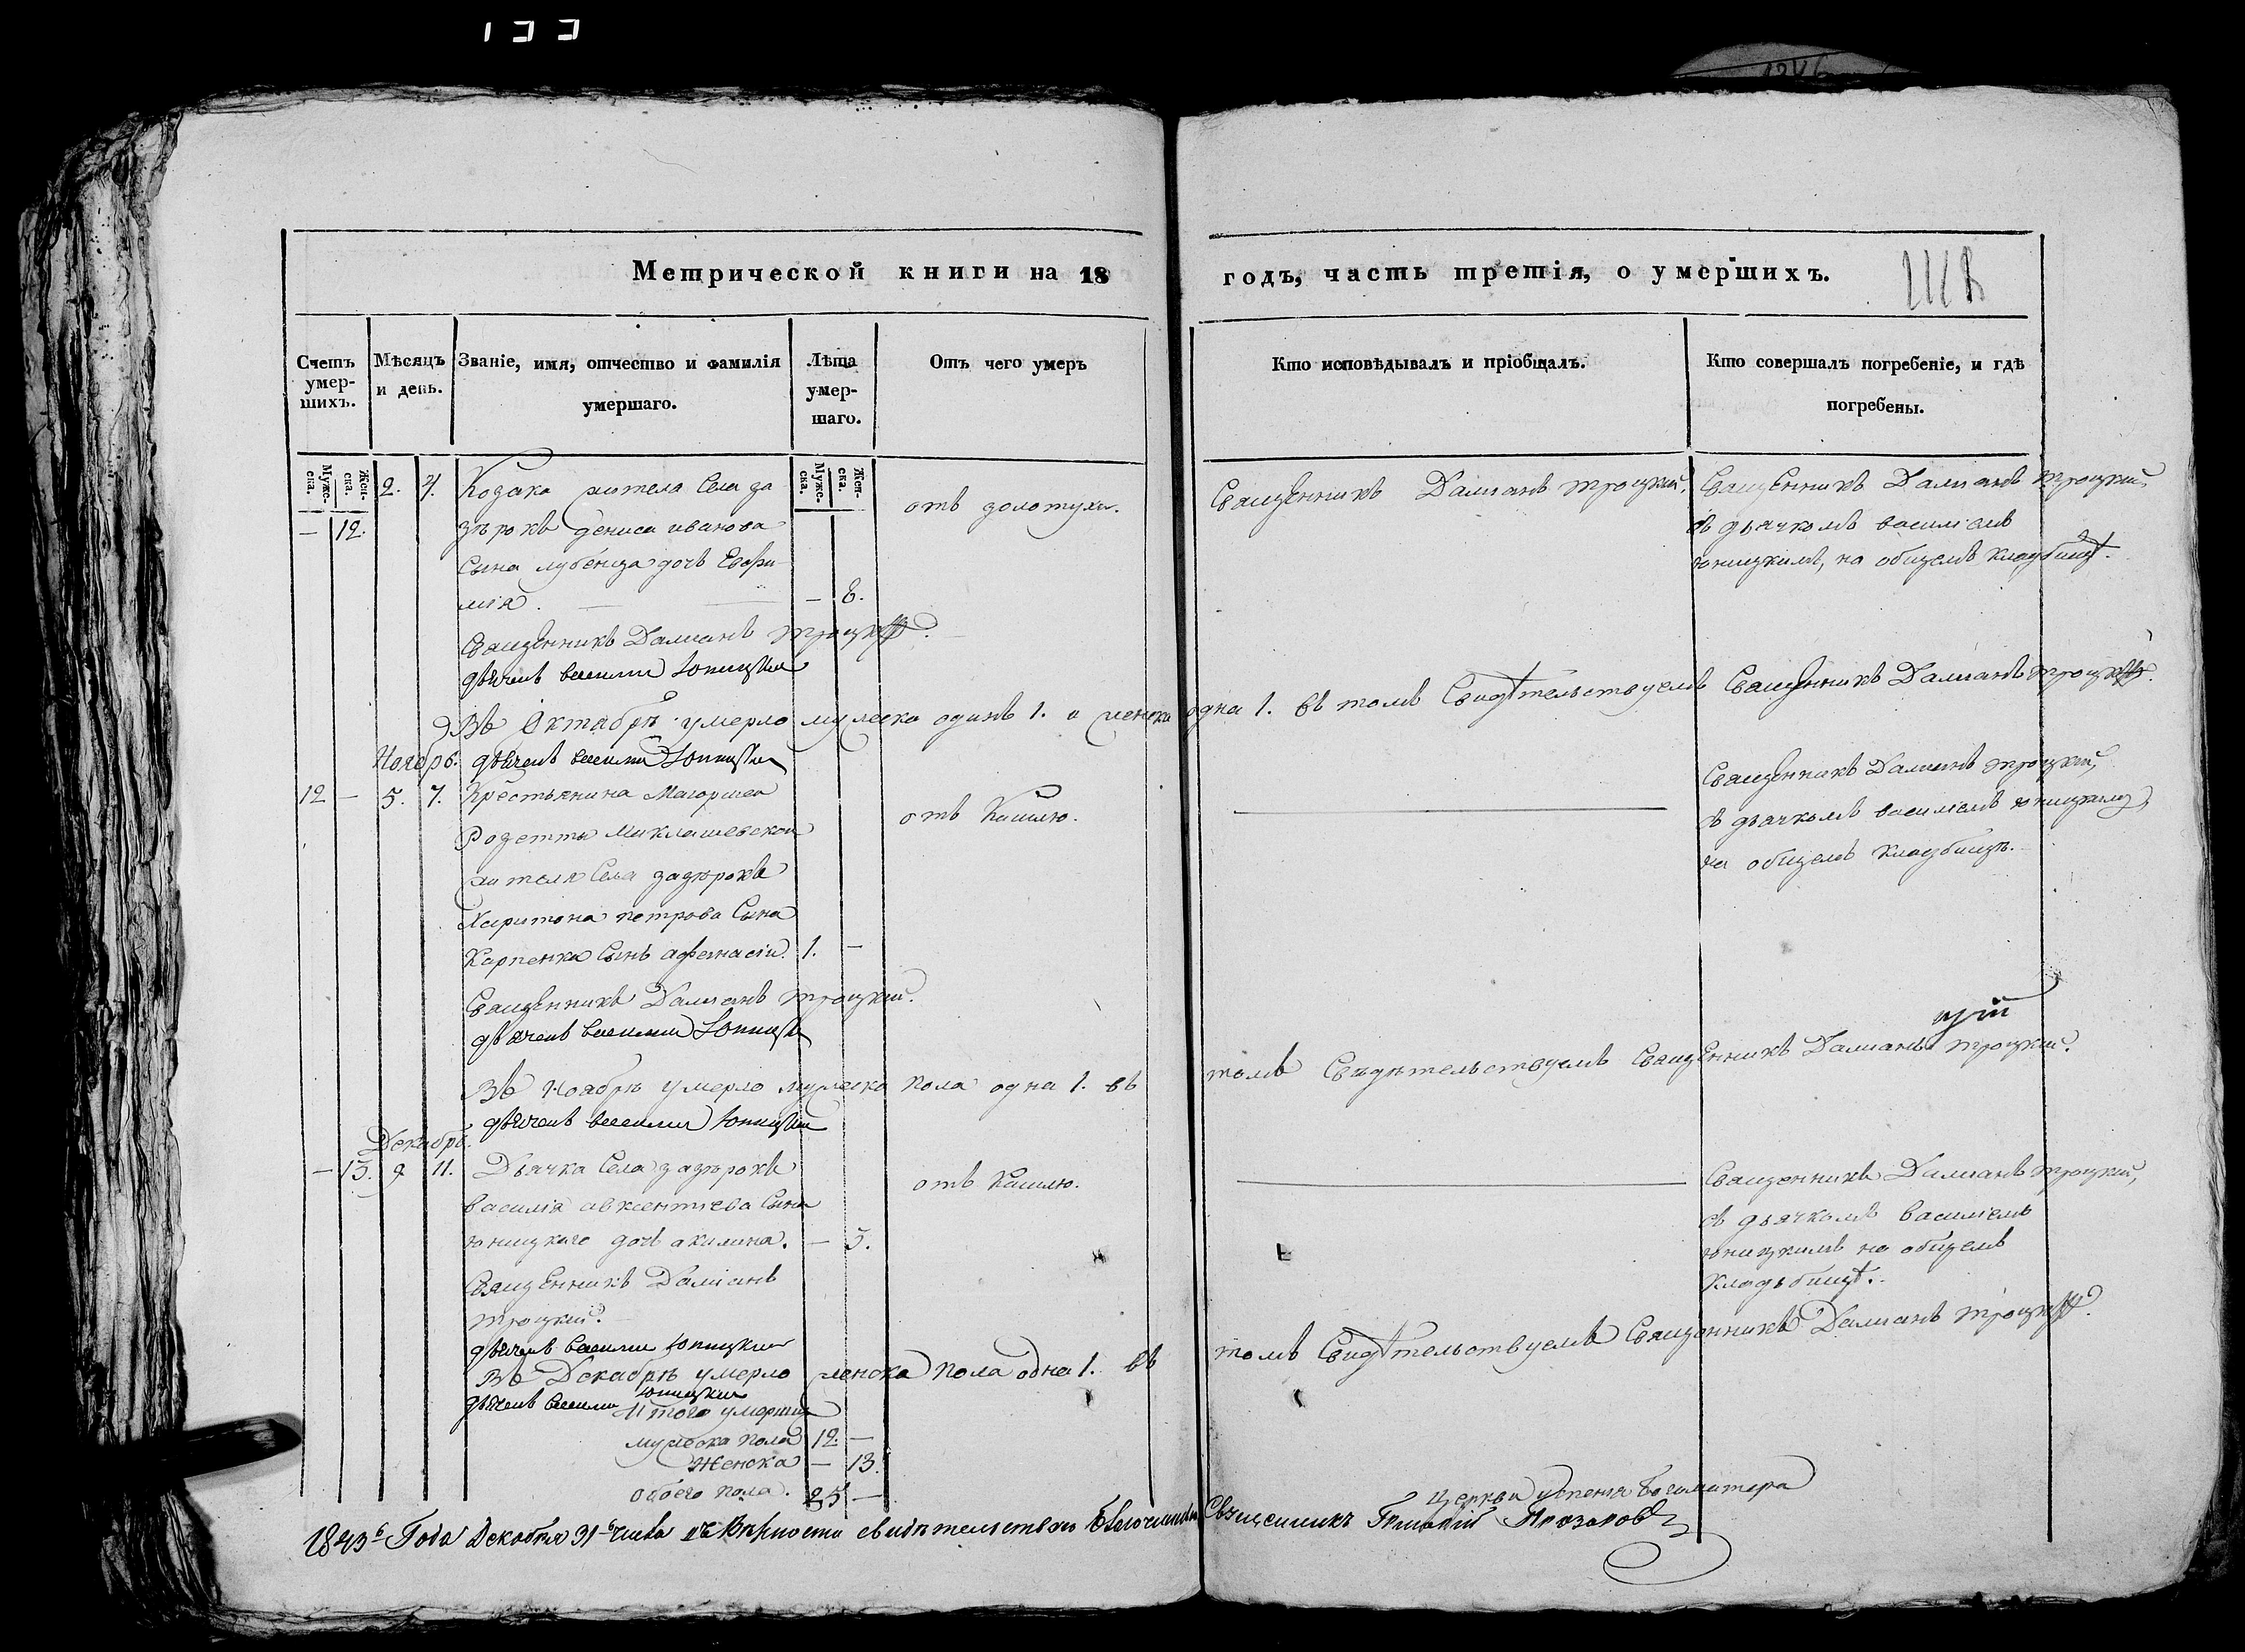 133
Метрической книги на 18
годъ, часть третія, о умершихъ.
Счетъ умер-шихъ.
Мѣсяцъ и день.
Званіе, имя, отчество и фамилія умершаго.
Лѣта умер-шаго.
Отъ чего умеръ
Кто исповѣдывалъ и пріобщалъ.
Кто совершалъ погребеніе, и гдѣ погребены.
Муже-ска.
Жен-ска.
Муже-ска.
Жен-ска.
— 12. 2. 4. Козака жителя Села за
зърокъ дениса иванова
Сына лубенца дочь Евфи
мія. — 8.
отъ золотухи.
Священникъ Даміанъ троцкій.
Священникъ Даміанъ троцкій,
съ дьячкомъ василіемъ
юницкимъ, на общемъ кладбищѣ.
Священникъ Даміанъ троцкій.
дьячекъ василии Юницкии
Въ Октабрѣ умерло мужеска одинъ 1. и женска одна 1. въ томъ Свидѣтельствуемъ Священникъ Даміанъ троцкій.
Ноябрь. дьячекъ василии Юницкии
12 — 5. 7. Крестьянина
миклашевской
жителя Села зазърокъ
Харитона петрова Сына
Карпенка Сынъ афанасій. 1. —
отъ Кашлю.
Священникъ Даміанъ троцкій,
съ дьячкомъ василіемъ юницкимъ,
на общемъ кладбищъ.
Священникъ Даміанъ троцкій.
дьячекъ василии Юницкии
Въ Ноябрѣ умерло мужеска пола одна 1. въ томъ Свидѣтельствуемъ Священникъ Даміанъ троцкій.
дьячекъ василии Юницкии
Декабрь.
— 13. 9 11. Дьячка Села зазърокъ
василія авксентіева Сына
юницкаго дочь акилина. — 5.
отъ Кашлю.
Священникъ Даміанъ троцкій,
съ дьячкомъ василіемъ
юницкимъ на общемъ
кладьбищѣ.
Священникъ Даміанъ
троцкій.
дьячекъ василии юницкии
Въ Декабрѣ умерло женска пола одна 1. въ томъ Свидѣтельствуемъ Священникъ Даміанъ троцкій.
дьячекъ василии юницкии
Итого умершихъ
мужеска пола 12. —
Женска — 13.
обоего пола. 25 —
1843 Года Декабря 31 числа въ Вѣрности свидѣтельствую Благочинный Священникъ
церкви успенія богоматера